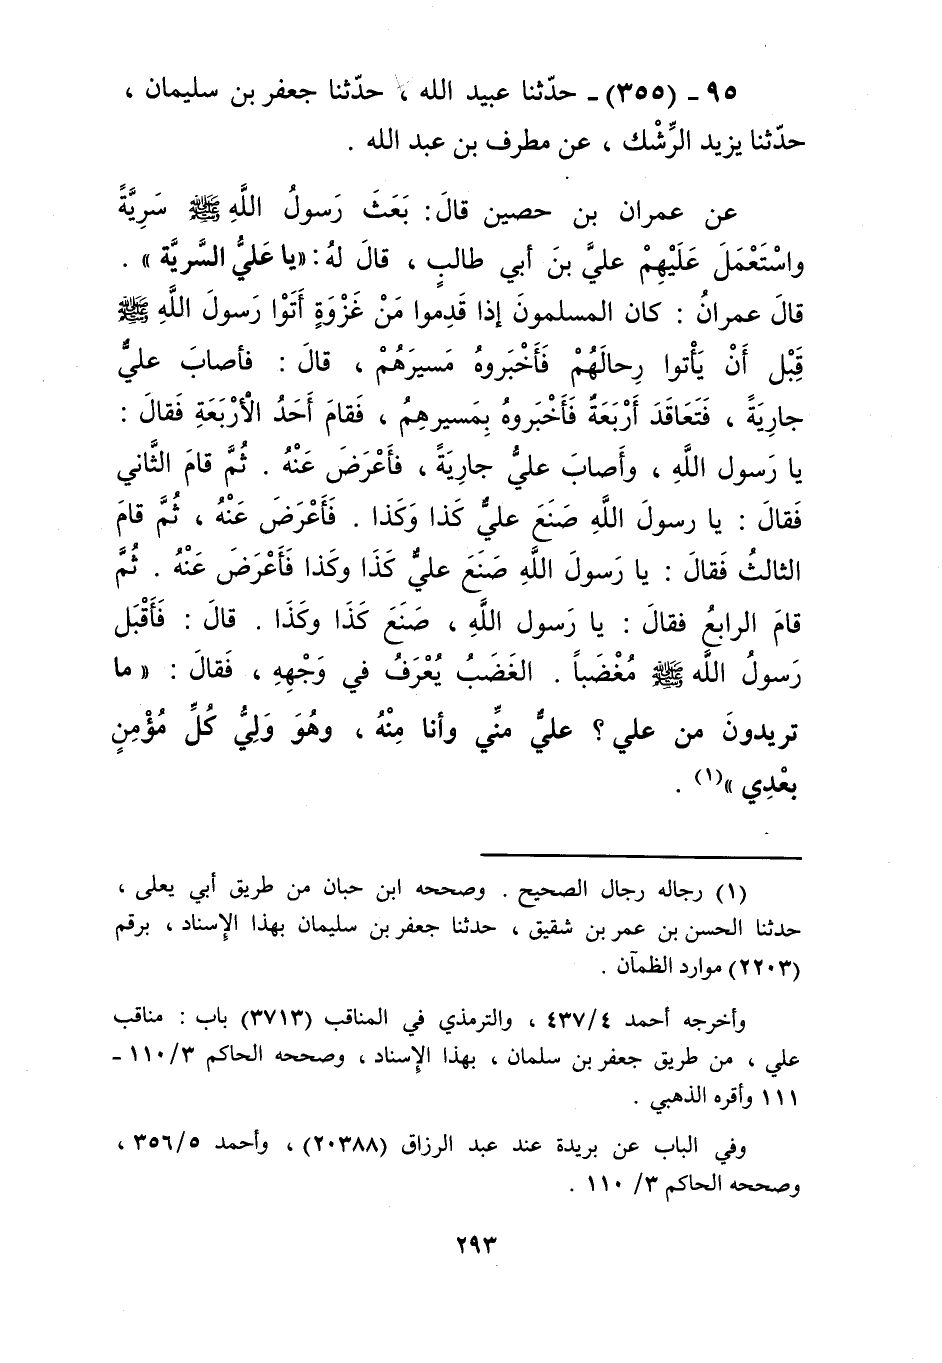 ٩٥ - (٣٥٥) - حدّثنا عبيد الله ، حدّثنا جعفر بن سليمان ،
حدّثنا يزيد الرِّشْك ، عن مطرف بن عبد الله .
عن عمران بن حصين قالَ: بَعَثَ رَسولُ اللَّهِ ﷺ سَرِيَّةً
واسْتَعْمَلَ عَلَيْهِمْ عليَّ بنَ أبي طالبٍ ، قالَ لهُ: «يا عَليُّ السَّريَّة » .
قالَ عمرانُ : كان المسلمونَ إذا قَدِموا مَنْ غَزْوَةٍ أَتَوْا رَسولَ اللَّهِ ﷺ
قِبْل أَنْ يَأْتوا رِحالَهُمْ فَأَخْبَروهُ مَسيرَهُمْ ، قالَ : فأصابَ عليُّ
جارِيَةً ، فَتَعاقَدَ أَرْبَعَةٌ فَأَخْبَروهُ بِمَسيرهِمُ ، فَقامَ أَحَدُ الْأرْبَعَةِ فَقالَ :
يا رَسول اللَّهِ ، وأَصابَ عليُّ جارِيَةً ، فأَعْرَضَ عَنْهُ . ثُمَّ قامَ الثَّاني
فَقالَ : يا رسولَ اللَّهِ صَنَعَ عليُّ كَذا وَكَذا . فَأَعْرَضَ عَنْهُ ، ثُمَّ قامَ
الثالثُ فَقالَ : يا رَسولَ اللَّهِ صَنَعَ عليٌّ كَذَا وكَذا فَأَعْرَضَ عَنْهُ . ثُمَّ
قامَ الرابعُ فقالَ : يا رَسول اللَّهِ ، صَنَعَ كَذَا وكَذَا . قالَ : فَأَقْبَل
رَسولُ اللَّه ﷺ مُغْضَباً . الغَضَبُ يُعْرَفُ في وَجْهِهِ ، فَقالَ : « ما
تريدونَ من علي ؟ عليُّ منِّي وأنا مِنْهُ ، وهُوَ وَلِيُّ كُلِّ مُؤْمِنٍ
بعْدِي »(١) .
(١) رجاله رجال الصحيح . وصححه ابن حبان من طريق أبي يعلى ،
حدثنا الحسن بن عمر بن شقيق ، حدثنا جعفر بن سليمان بهذا الإسناد ، برقم
(٢٢٠٣) موارد الظمآن .
وأخرجه أحمد ٤٣٧/٤ ، والترمذي في المناقب (٣٧١٣) باب : مناقب
علي ، من طريق جعفر بن سلمان ، بهذا الإسناد ، وصححه الحاكم ١١٠/٣ -
١١١ وأقره الذهبي .
وفي الباب عن بريدة عند عبد الرزاق (٢٠٣٨٨) ، وأحمد ٣٥٦/٥ ،
وصححه الحاكم ٣/ ١١٠ .
٢٩٣